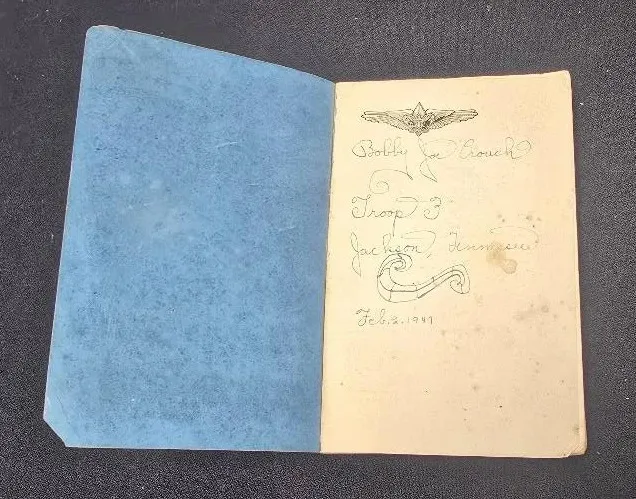 Bobby Joe Crouch
Troop 3
Jackson, Tennessee
Feb. 2. 1947